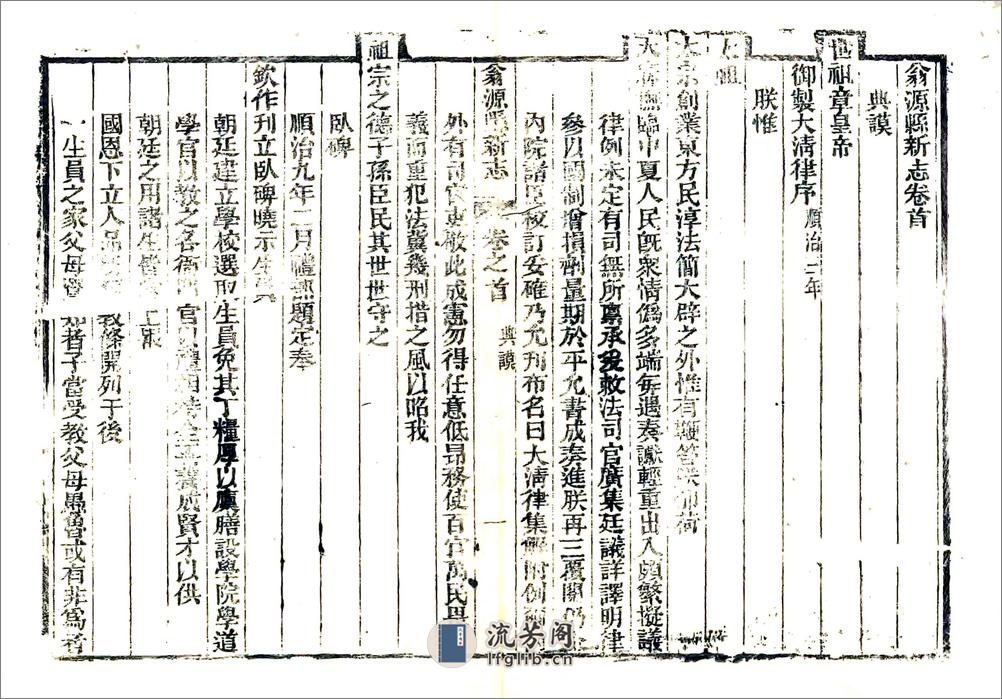 翁源縣新志卷首
典謨
世祖章皇帝
御製大清律序 順治三年
朕惟
太祖
太宗創業東方民淳法簡大辟之外惟有鞭笞朕仰荷
天庥撫臨中夏人民旣衆情僞多端每遇奏讞輕重出入頗繁擬議
律例未定有司無所稟承爰敕法司官廣集廷議詳譯明律
參以國制增損劑量期於平允書成奏進朕再三覆閱仍
內院諸臣校訂妥確乃允刊布名曰大清律集解附例爾
翁源縣新志 卷之首 典謨 一
外有司官吏敬此成憲勿得任意低昻務使百官萬民畏
義而重犯法冀幾刑措之風以昭我
祖宗之德子孫臣民其世世守之
臥碑
順治九年二月禮部題定奉
欽作刊立臥碑曉示生員
朝廷建立學校選取生員免其丁糧厚以廩膳設學院學道
學官以教之各衙門官以禮相待全要養成賢才以供
朝廷之用諸生皆當上報
國恩下立人品 教條開列于後
一生員之家父母賢 者子當受教父母愚魯或有非爲者
流芳阁
lfglib.cn